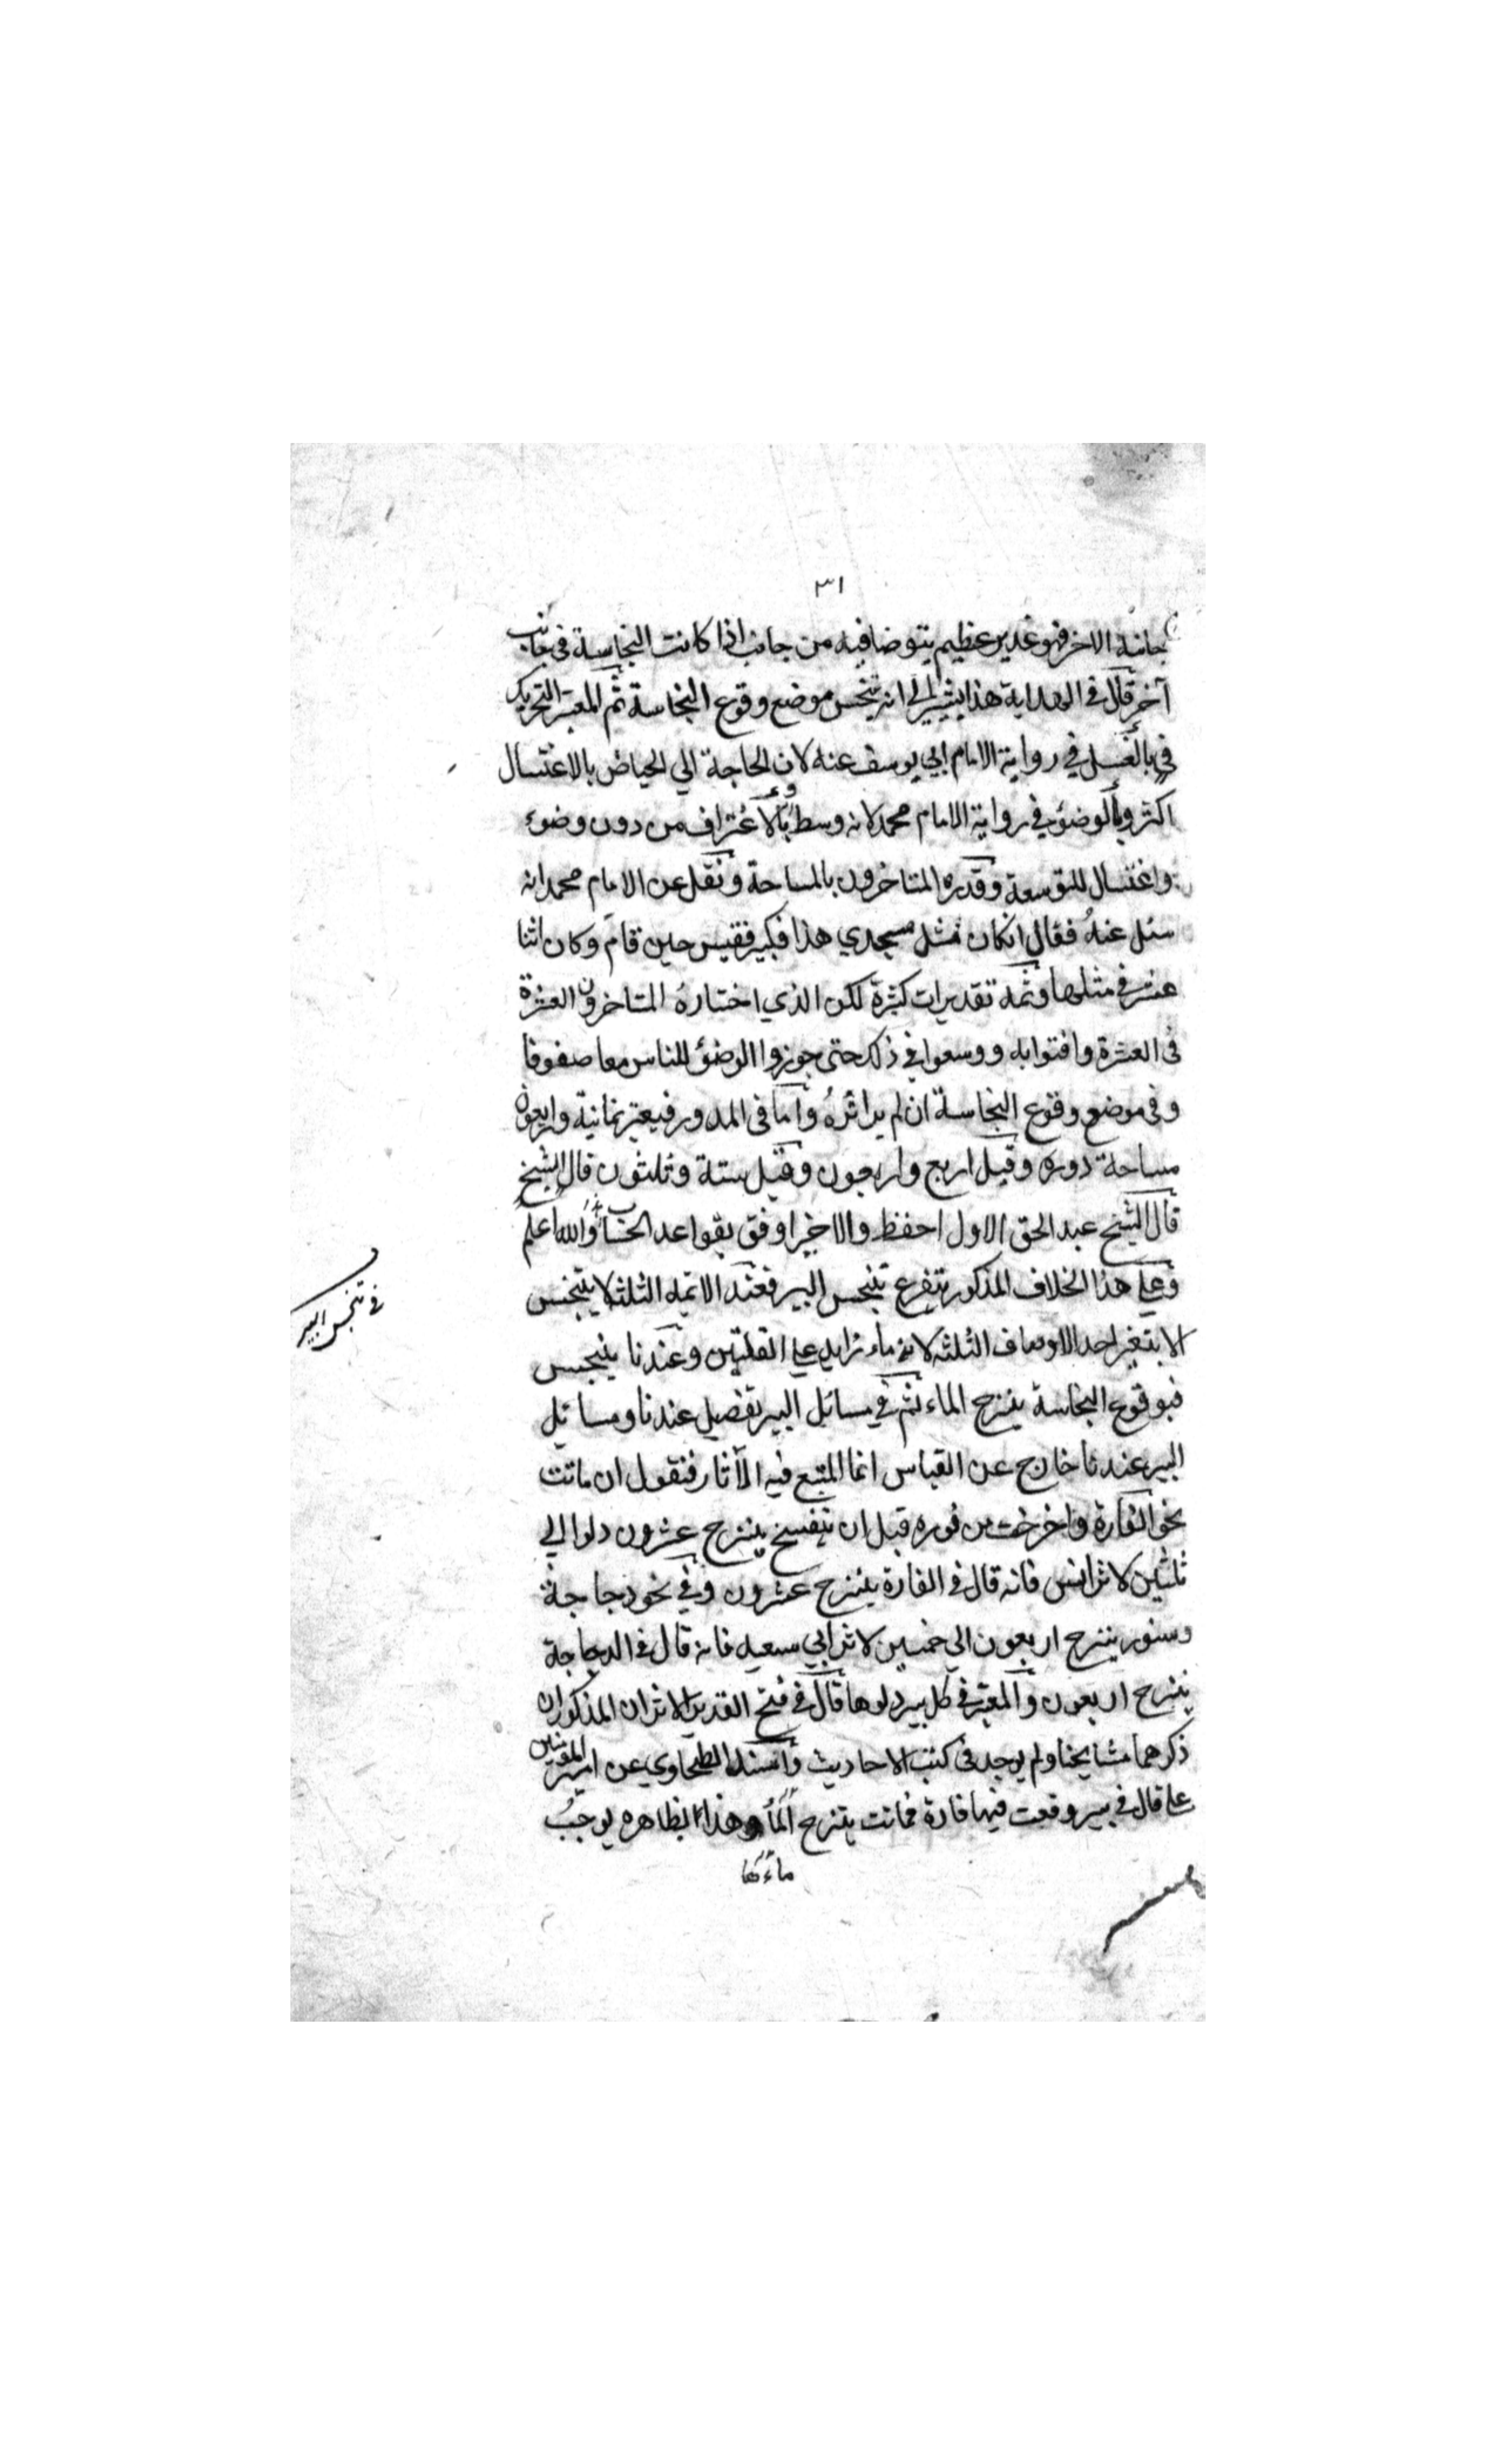 ٣١
جانبه الاخر فهو غدير عظيم يتوضا فيه من جانب اذا كانت النجاسة في جانب
آخر قال في الهداية هذا يشير الى انه يتنجس موضع وقوع النجاسة ثم المعتبر التحريك
في بالغسل في رواية الامام ابي يوسف عنه لان الحاجة الي الحياض بالاغتسال
اكثر وبالوضوء في رواية الامام محمد لانه وسط وبالاغتراف من دون وضوء
واغتسال للتوسعة وقدره المتاخرون بالمساحة ونقل عن الامام محمد انه
سئل عنه فقال انكان مثل مسجدي هذا فكبير فقيس حين قام وكان اثنا
عشر في مثلها وثمه تقديرات كثيرة لكن الذي اختاره المتاخرون العشرة
في العشرة وافتوا به ووسعوا في ذلك حتى جوزوا الوضؤ للناس معا صفوفا
وفي موضع وقوع النجاسة ان لم ير اثره واما في المدور فيعتبر ثمانية واربعون
مساحة دوره وقيل اربع واربعون وقيل ستة وثلثون قال الشيخ
قال الشيخ عبد الحق الاول احفظ والاخير اوفق بقواعد الحساب والله اعلم
وعلي هذا الخلاف المذكور يتفرع تنجس البير فعند الائمه الثلثه لا يتنجس
الا بتغير احد الاوصاف الثلثه لانه ماء زايد علي القلتين وعندنا يتنجس
فبوقوع النجاسة ينزح الماء ثم في مسائل البير تفصيل عندنا ومسائل
البير عندنا خارج عن القياس انما المتبع فيه الآثار فنقول ان ماتت
نحو الفارة واخرجت من فوره قبل ان تتفسخ ينزح عشرون دلوا الي
ثلثين لاثر انس فانه قال في الفارة ينزح عشرون وفي نحو دجاجة
وسنور ينزح اربعون الي خمسين لاثر ابي سعيد فانه قال في الدجاجة
ينزح اربعون والمعتبر في كل بير دلوها قال في فتح القدير الاثران المذكوران
ذكرهما مشايخنا ولم يوجد في كتب الاحاديث واسند الطحاوي عن امير المؤمنين
علي قال في بير وقعت فيها فارة فماتت ينزح الماء وهذا بظاهره يوجب
ماءها
في تنجس البير